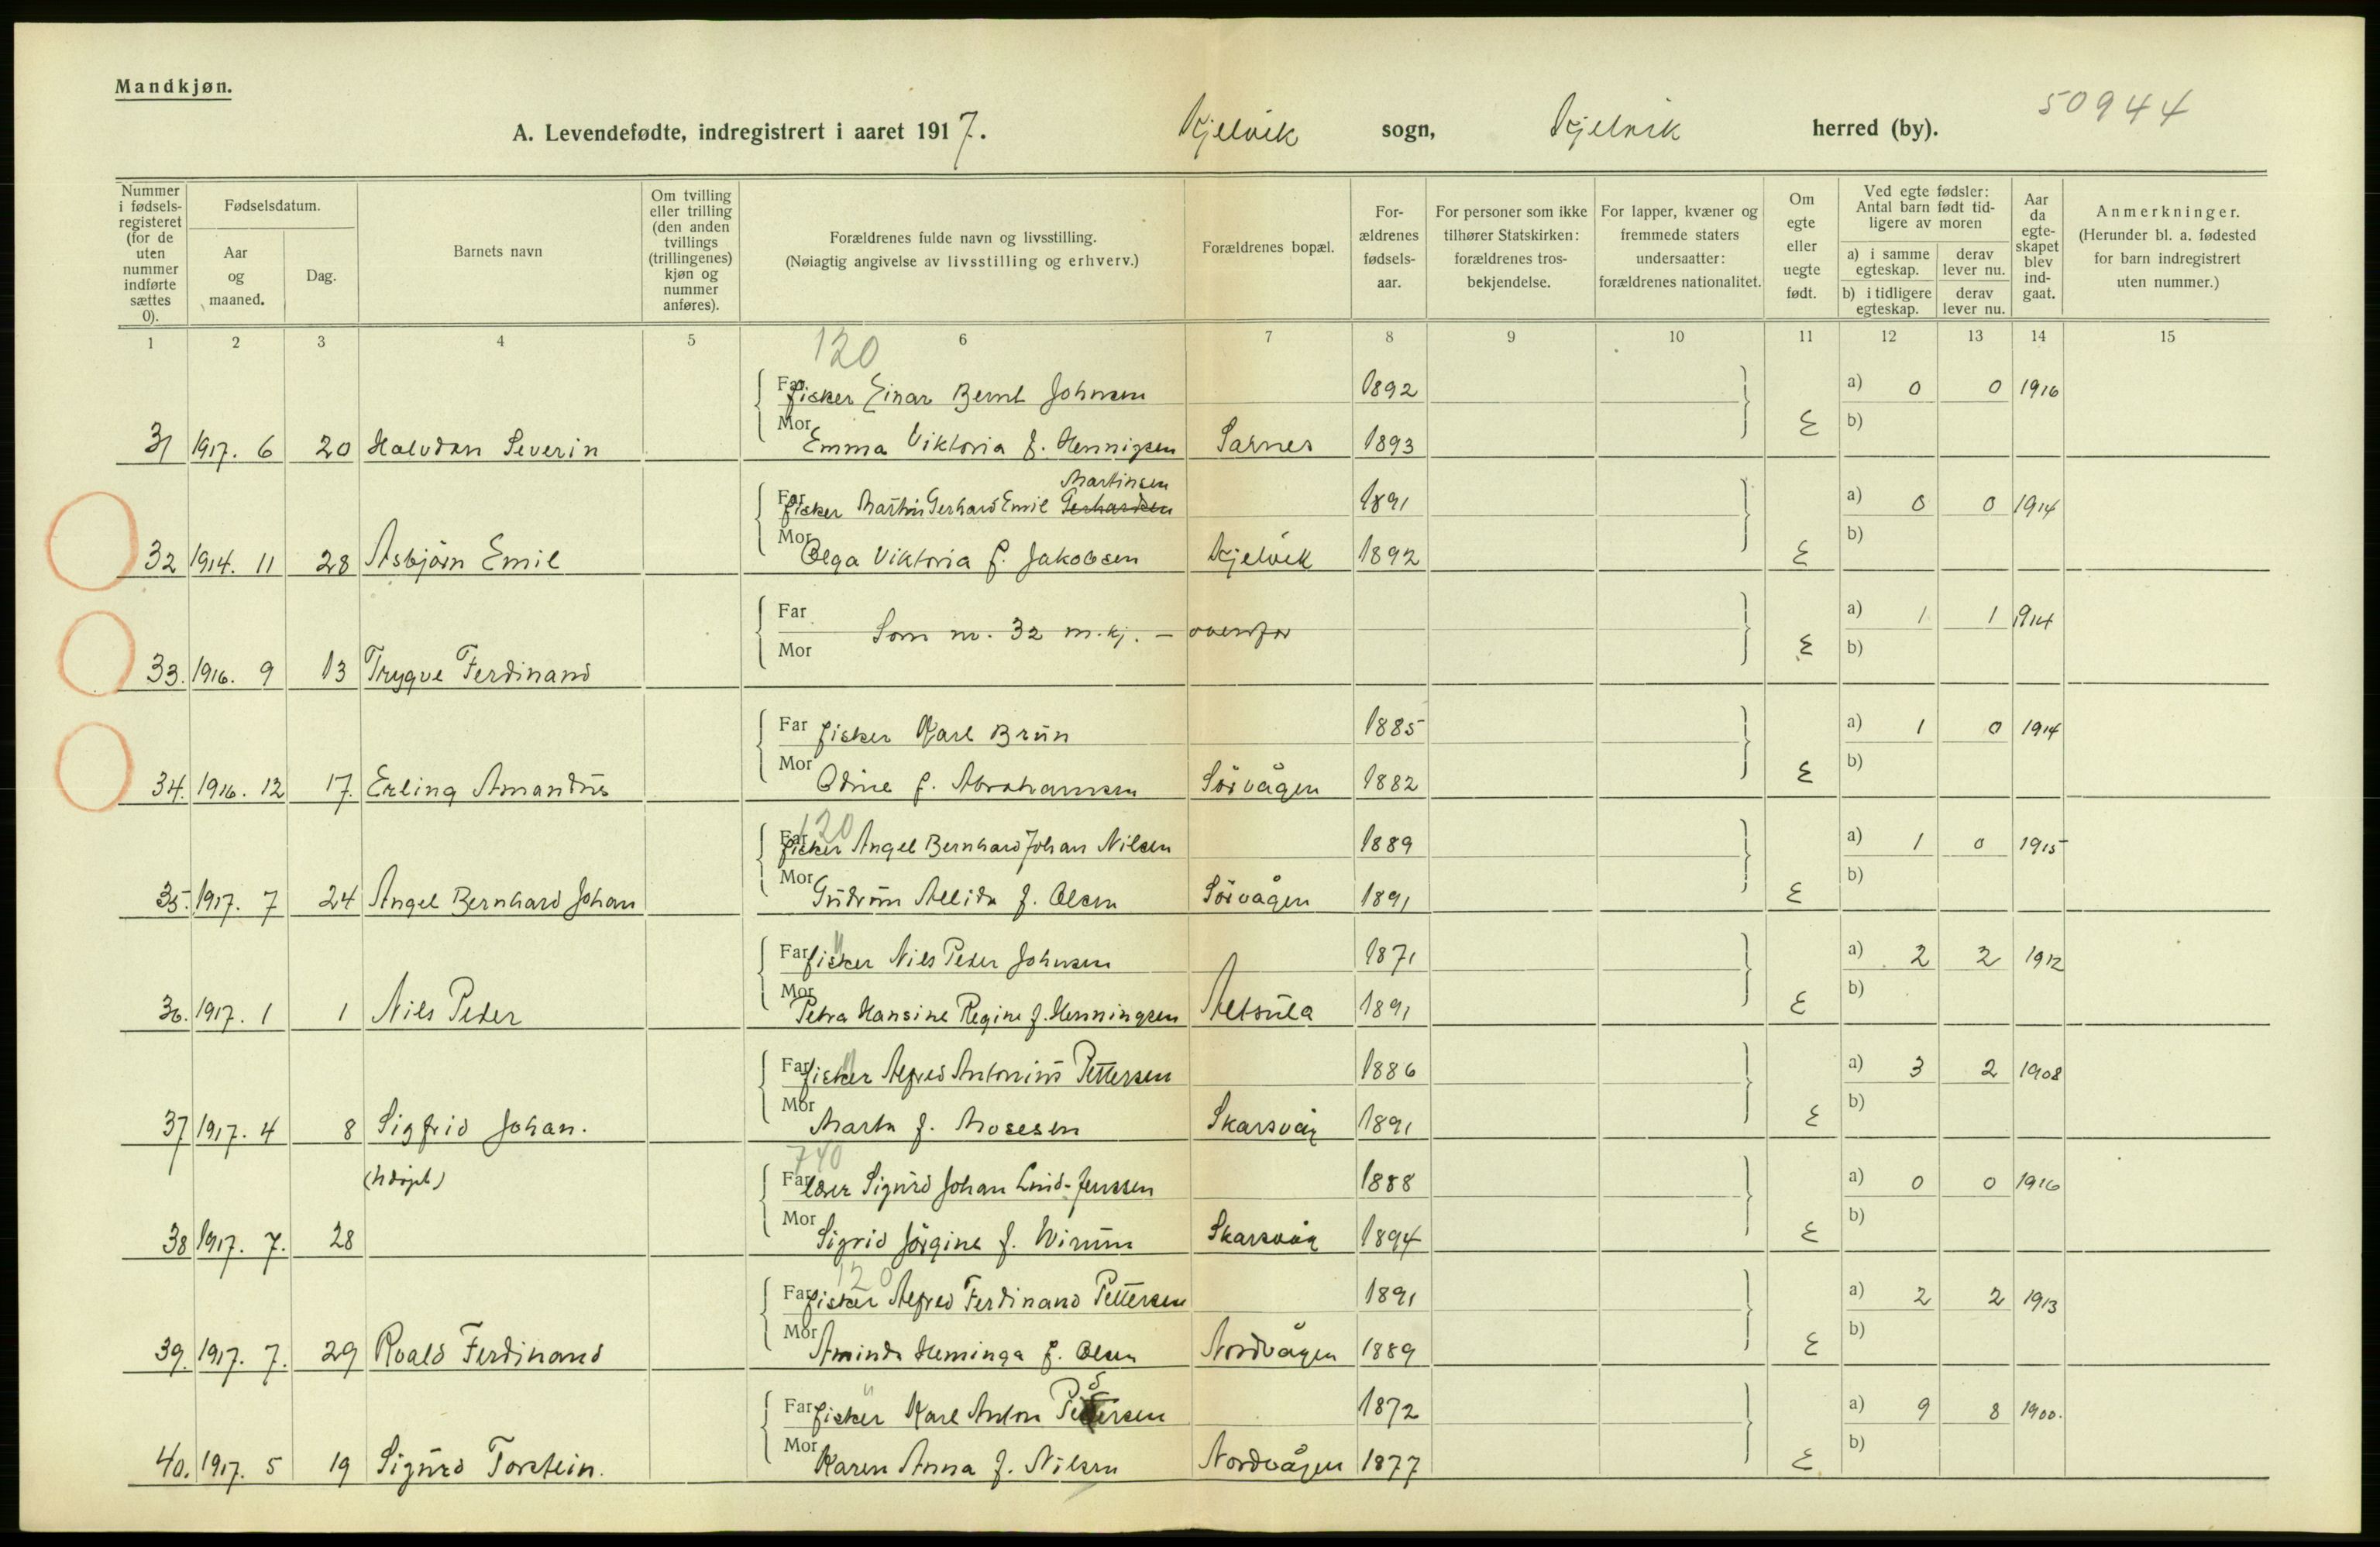 Mandkjøn.
50944
A. Levendefødte, indregistrert i aaret 1917. Kjelvik sogn, Kjelvik herred (by).
Nummer i fødselsregisteret (for de uten nummer indførte sættes 0).
Fødselsdatum.
Aar og maaned.
Dag.
Barnets navn
Om tvilling eller trilling (den anden tvillings (trillingenes) kjøn og nummer anføres).
Forældrenes fulde navn og livsstilling.
(Nøiagtig angivelse av livsstilling og erhverv.)
Forældrenes bopæl.
For-ældrenes fødsels-aar.
For personer som ikke tilhører Statskirken: forældrenes tros-bekjendelse.
For lapper, kvæner og fremmede staters undersaatter: forældrenes nationalitet.
Om egte eller uegte født.
Ved egte fødsler: Antal barn født tid-ligere av moren
a) i samme egteskap.
derav lever nu.
b) i tidligere egteskap.
derav lever nu.
Aar da egte-skapet blev ind-gaat.
Anmerkninger.
(Herunder bl. a. fødested for barn indregistrert uten nummer.)
1 2 3 4 5 6 7 8 9 10 11 12 13 14 15
120
Far fisker Einar Bernt Johnsen 1892 a) 0 0 1916
31 1917. 6 20 Halvdan Severin Mor Emma Viktoria f. Hennigsen Sarnes 1893 E b)
Martinsen
Far fisker Martin Gerhard Emil Gerhardsen 1891 a) 0 0 1914
32 1914. 11 28 Asbjörn Emil Mor Olga Viktoria f. Jakobsen Kjelvik 1892 E b)
Far Som nr. 32 m.kj. – ovenfor a) 1 1 1914
33. 1916. 9 13 Trygve Ferdinand Mor E b)
Far fisker Karl Brun 1885 a) 1 0 1914
34. 1916. 12 17. Erling Amandus Mor Odine f. Abrahamsen Sörvågen 1882 E b)
120
Far fisker Angel Bernhard Johan Nilsen 1889 a) 1 0 1915
35. 1917. 7 24 Angel Bernhard Johan Mor Gudrun Allida f. Olsen Sörvågen 1891 E b)
"
Far fisker Nils Peder Johnsen 1871 a) 2 2 1912
36. 1917. 1 1 Nils Peder Mor Petra Hansine Regine f. Henningsen Altsula 1891 E b)
"
Far fisker Alfred Antonius Pettersen 1886 a) 3 2 1908
37 1917. 4 8 Sigfrid Johan. Mor Marta f. Mosesen Skarsvåg 1891 E b)
740
(Udöpt)
Far lærer Sigurd Johan Lind-Jenssen 1888 a) 0 0 1916
38 1917. 7. 28 Mor Sigrid Jörgine f. Wirum Skarsvåg 1894 E b)
120
Far fisker Alfred Ferdinand Pettersen 1891 a) 2 2 1913
39. 1917. 7. 29 Roald Ferdinand Mor Aminda Heminga f. Olsen Nordvågen 1889 E b)
"
Far fisker Karl Anton Pedersen 1872 a) 9 8 1900.
40. 1917. 5 19 Sigurd Torstein. Mor Karen Anna f. Nilsen Nordvågen 1877 E b)